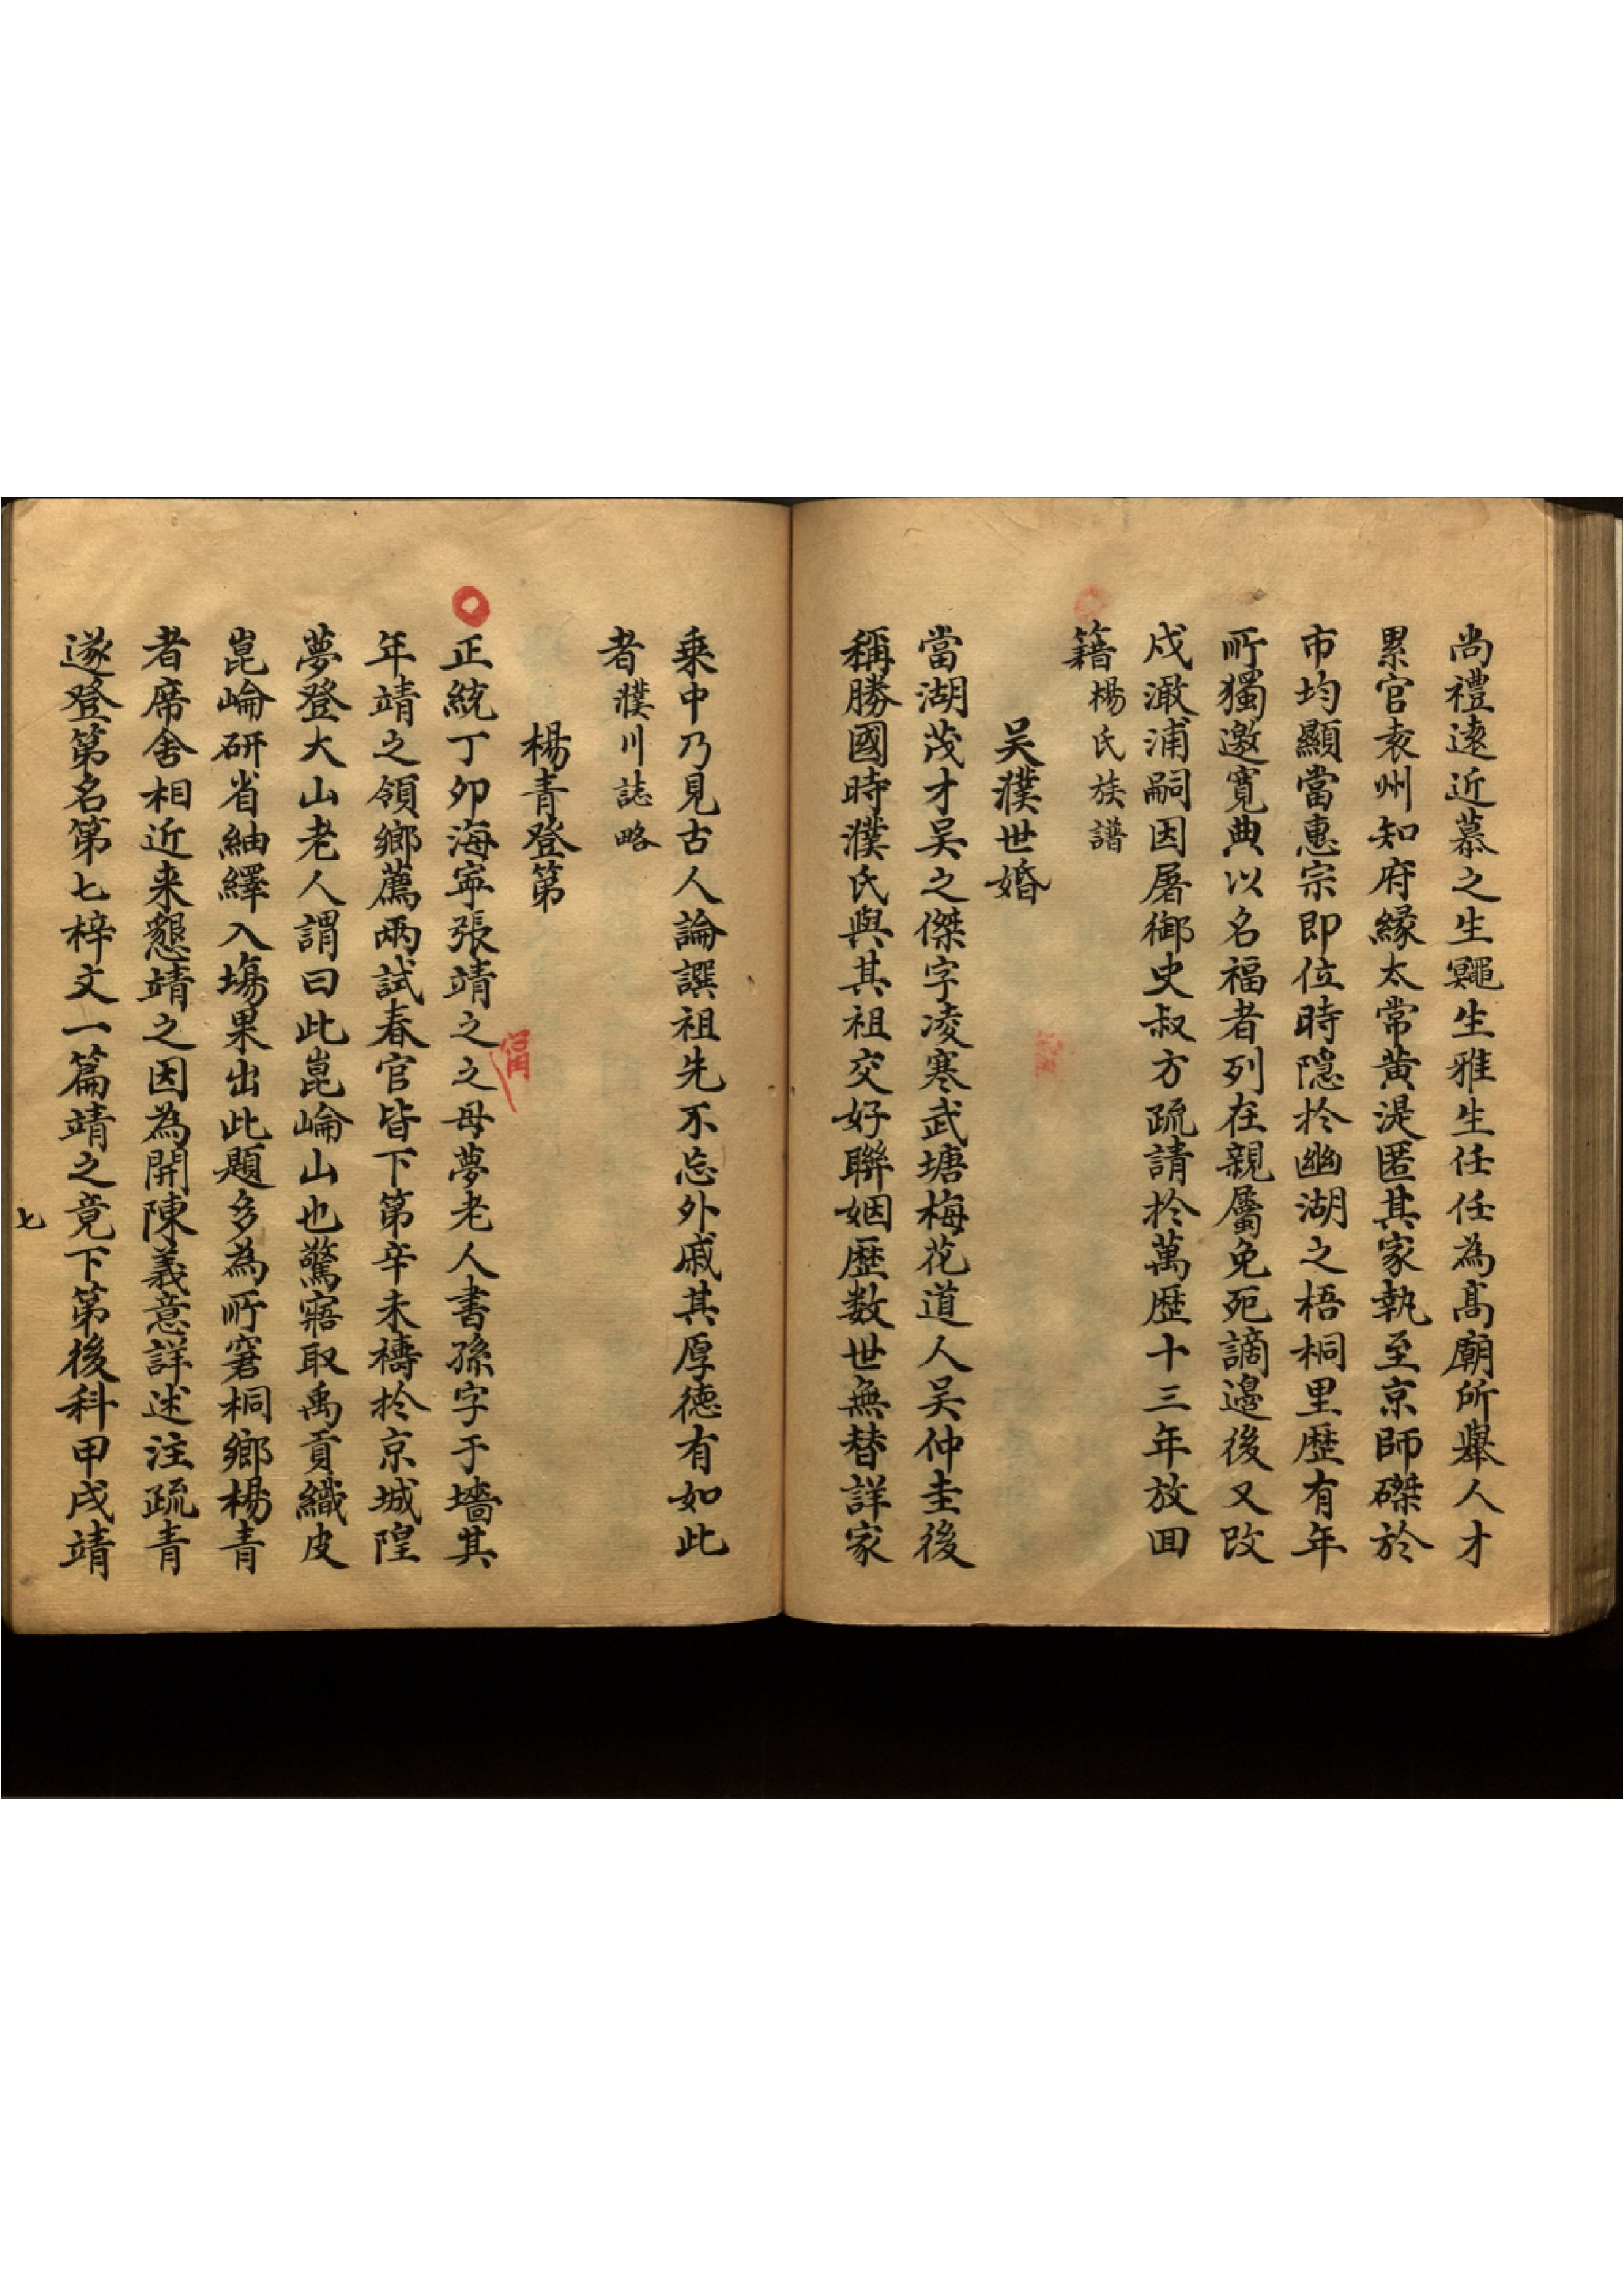 尚禮遠近慕之生鼆生雅生任任為髙廟所舉人才
累官袁州知府縁太常黄湜匿其家執至京師磔於
市均顯當惠宗即位時隠扵幽湖之梧桐里歴有年
所獨邀寛典以名福者列在親屬免死謫邉後又改
戍澉浦嗣因屠御史叔方疏請扵萬歴十三年放回
籍楊氏族譜
吴濮世婚
當湖茂才吴之傑字凌寒武塘梅花道人吴仲圭後
稱勝國時濮氏與其祖交好聯姻歴数世無替詳家
乗中乃見古人論譔祖先不忘外戚其厚徳有如此
者濮川誌略
楊青登第
正統丁夘海寧張靖之之母夢老人書孫字于墻其
年靖之領鄉薦兩試春官皆下第辛未禱扵京城隍
夢登大山老人謂曰此崑崘山也驚寤取禹貢織皮
崑崘研省紬繹入塲果出此題多為所窘桐鄉楊青
者席舍相近来懇靖之因為開陳義意詳述注疏青
遂登第名第七梓文一篇靖之竟下第後科甲戌靖
七